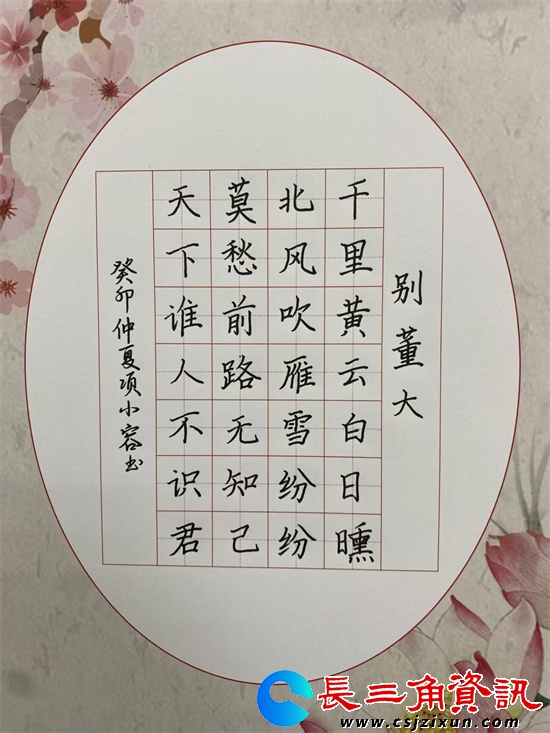 别董大
千里黄云白日曛
北风吹雁雪纷纷
莫愁前路无知己
天下谁人不识君
癸卯仲夏项小容书
長三角資訊
www.csjzixun.com